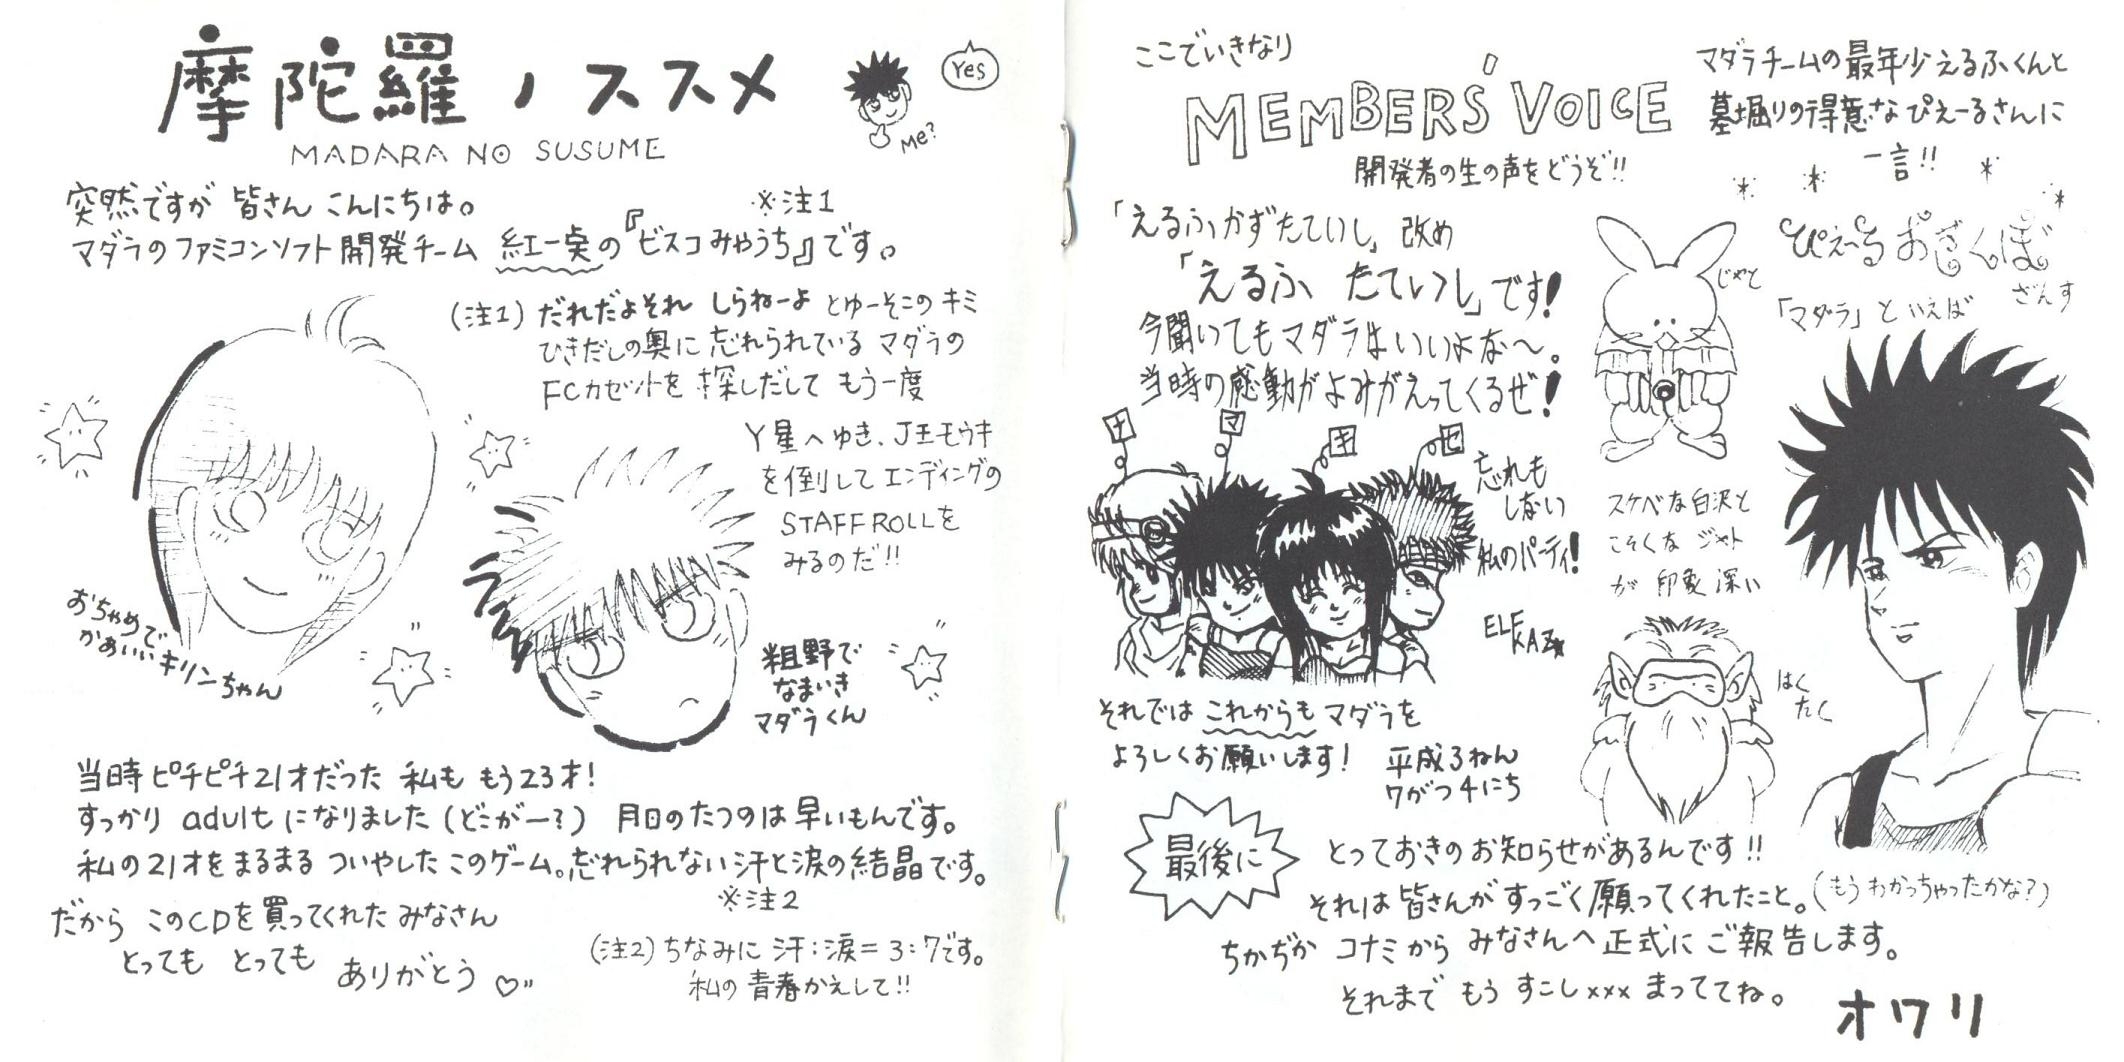 摩陀羅ノススメ
MADARA NO SUSUME
Yes
Me?
突然ですが 皆さん こんにちは。
※注1
マダラのファミコンソフト開発チーム 紅一点の『ビスコみやうち』です。
(注1) だれだよそれ しらねーよ とゆーそこのキミ
ひきだしの奥に忘れられている マダラの
FCカセットを 探しだして もう一度
Y星へゆき、J王モウキ
を倒して エンディングの
STAFF ROLLを
みるのだ!!
おちゃめで
かあいいキリンちゃん
粗野で
なまいき
マダラくん
当時ピチピチ21才だった 私も もう23才!
すっかり adult になりました(どこがー?) 月日のたつのは早いもんです。
私の21才をまるまる ついやした このゲーム。忘れられない汗と涙の結晶です。
※注2
だから このCDを買ってくれた みなさん
とっても とっても
ありがとう♡"
(注2) ちなみに 汗:涙=3:7です。
私の 青春かえして!!
ここでいきなり
MEMBERS' VOICE
開発者の生の声をどうぞ!!
マダラチームの最年少えるふくんと
墓堀りの得意なぴえーるさんに
一言!!
「えるふかずたていし」改め
「えるふ たていし」です!
今聞いてもマダラはいいよな〜。
当時の感動がよみがえってくるぜ!
ナ
マ
キ
セ
忘れも
しない
私のパーティ!
ELF KAZ
じゃと
ざんす
「マダラ」といえば
スケベな白沢と
こそくな ジャト
が 印象深い
はく
たく
それでは これからもマダラを
よろしくお願いします!
平成3ねん
7がつ4にち
最後に
とっておきのお知らせがあるんです!!
それは皆さんがすっごく願ってくれたこと。(もうわかっちゃったかな?)
ちかぢか コナミから みなさんへ 正式に ご報告します。
それまで もう すこし××× まっててね。
オワリ